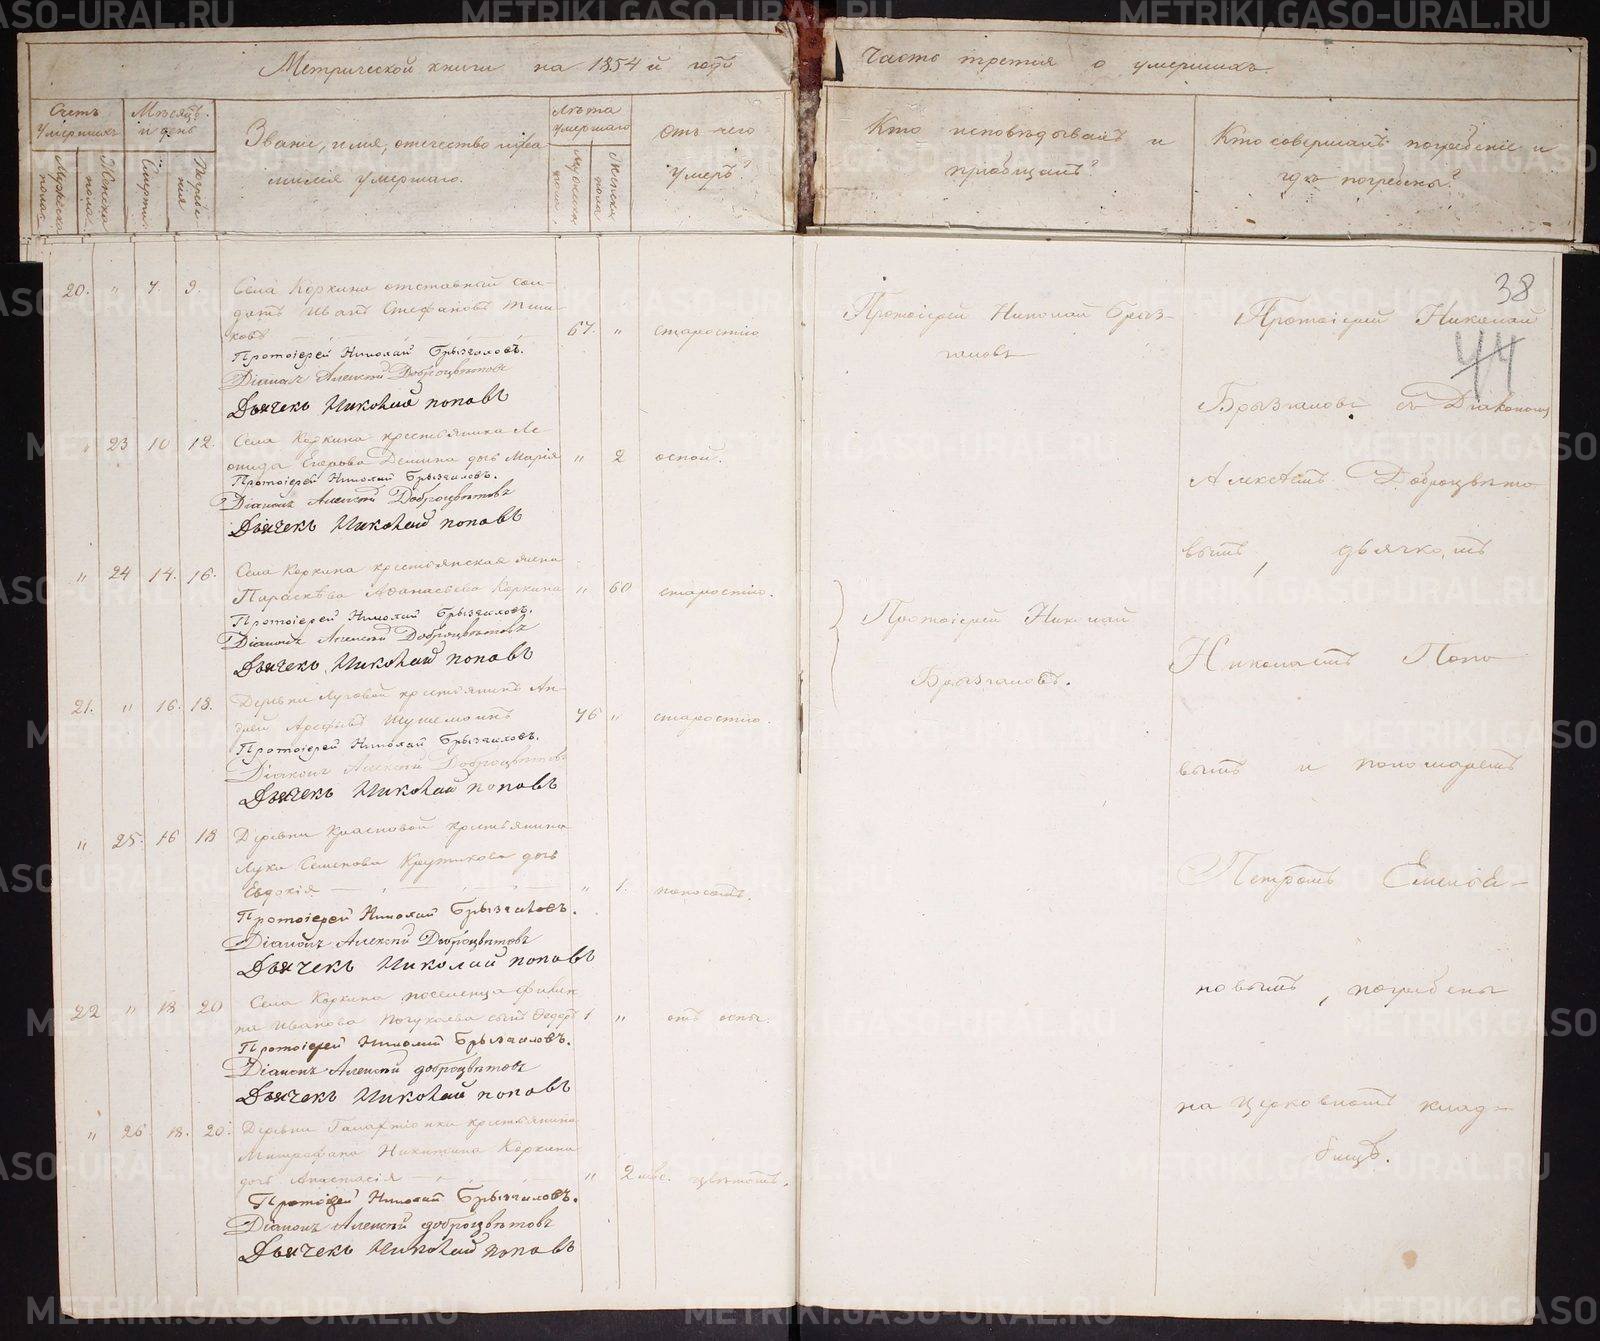 Метрической книги на 1854й годъ
Часть третья о умершихъ.
Счетъ умершихъ
Мужеска пола.
Женска пола.
Мѣсяцъ и день
Смерти.
Погребенія
Званіе, имя, отчество и фа-
милія умершаго.
Лѣта умершаго
Мужеска пола.
Женска пола
Отъ чего
умеръ?
Кто исповѣдывалъ и
пріобщалъ?
Кто совершалъ погребеніе и
гдѣ погребены?
38
44
20. " 7. 9. Села Коркина отставный сол-
датъ Иванъ Стефановъ
67. " старостію
Протоіерей Николай Брызгаловъ.
Діаконъ Алексій Доброцвѣтовъ
Дьячекъ Николай поповъ
" 23 10 12. Села Коркина крестьянина Ле-
онида Егорова Демина дочь Марія " 2 оспой.
Протоіерей Николай Брызгаловъ.
Діаконъ Алексій Доброцвѣтовъ
Дьячекъ Николай поповъ
" 24 14. 16. Села Коркина крестьянская жена
Параскева Афанасьева Коркина " 60 старостію.
Протоіерей Николай Брызгаловъ.
Діаконъ Алексій Доброцвѣтовъ
Дьячекъ Николай поповъ
21. " 16. 18. Деревни Луговой крестьянинъ Ан-
дрей 76 " старостію.
Протоіерей Николай Брызгаловъ.
Діаконъ Алексій Доброцвѣтовъ
Дьячекъ Николай поповъ
" 25. 16 18 Деревни крестьянина
Луки Семенова Крутикова дочь
Евдокія " 1. поносомъ.
Протоіерей Николай Брызгаловъ.
Діаконъ Алексій Доброцвѣтовъ
Дьячекъ Николай поповъ
22 " 18 20 Села Коркина поселенца Филип-
па Иванова сынъ Федоръ 1 " отъ оспы.
Протоіерей Николай Брызгаловъ.
Діаконъ Алексій доброцвѣтовъ
Дьячекъ Николай поповъ
" 26 18. 20. Деревни крестьянина
Митрофана Никитина Коркина
дочь Анастасія " 2 мѣс.
Протоіерей Николай Брызгаловъ.
Діаконъ Алексій доброцвѣтовъ
Дьячекъ Николай поповъ
Протоіерей Николай Брыз-
галовъ
Протоіерей Николай
Брызгаловъ.
Протоіерей Николай
Брызгаловъ съ Діакономъ
Алексѣемъ Доброцвѣто-
вымъ, дьячкомъ
Николаемъ Попо-
вымъ и пономаремъ
Петромъ
новымъ, погребены
на церковномъ клад-
бищѣ.
METRIKI.GASO-URAL.RU